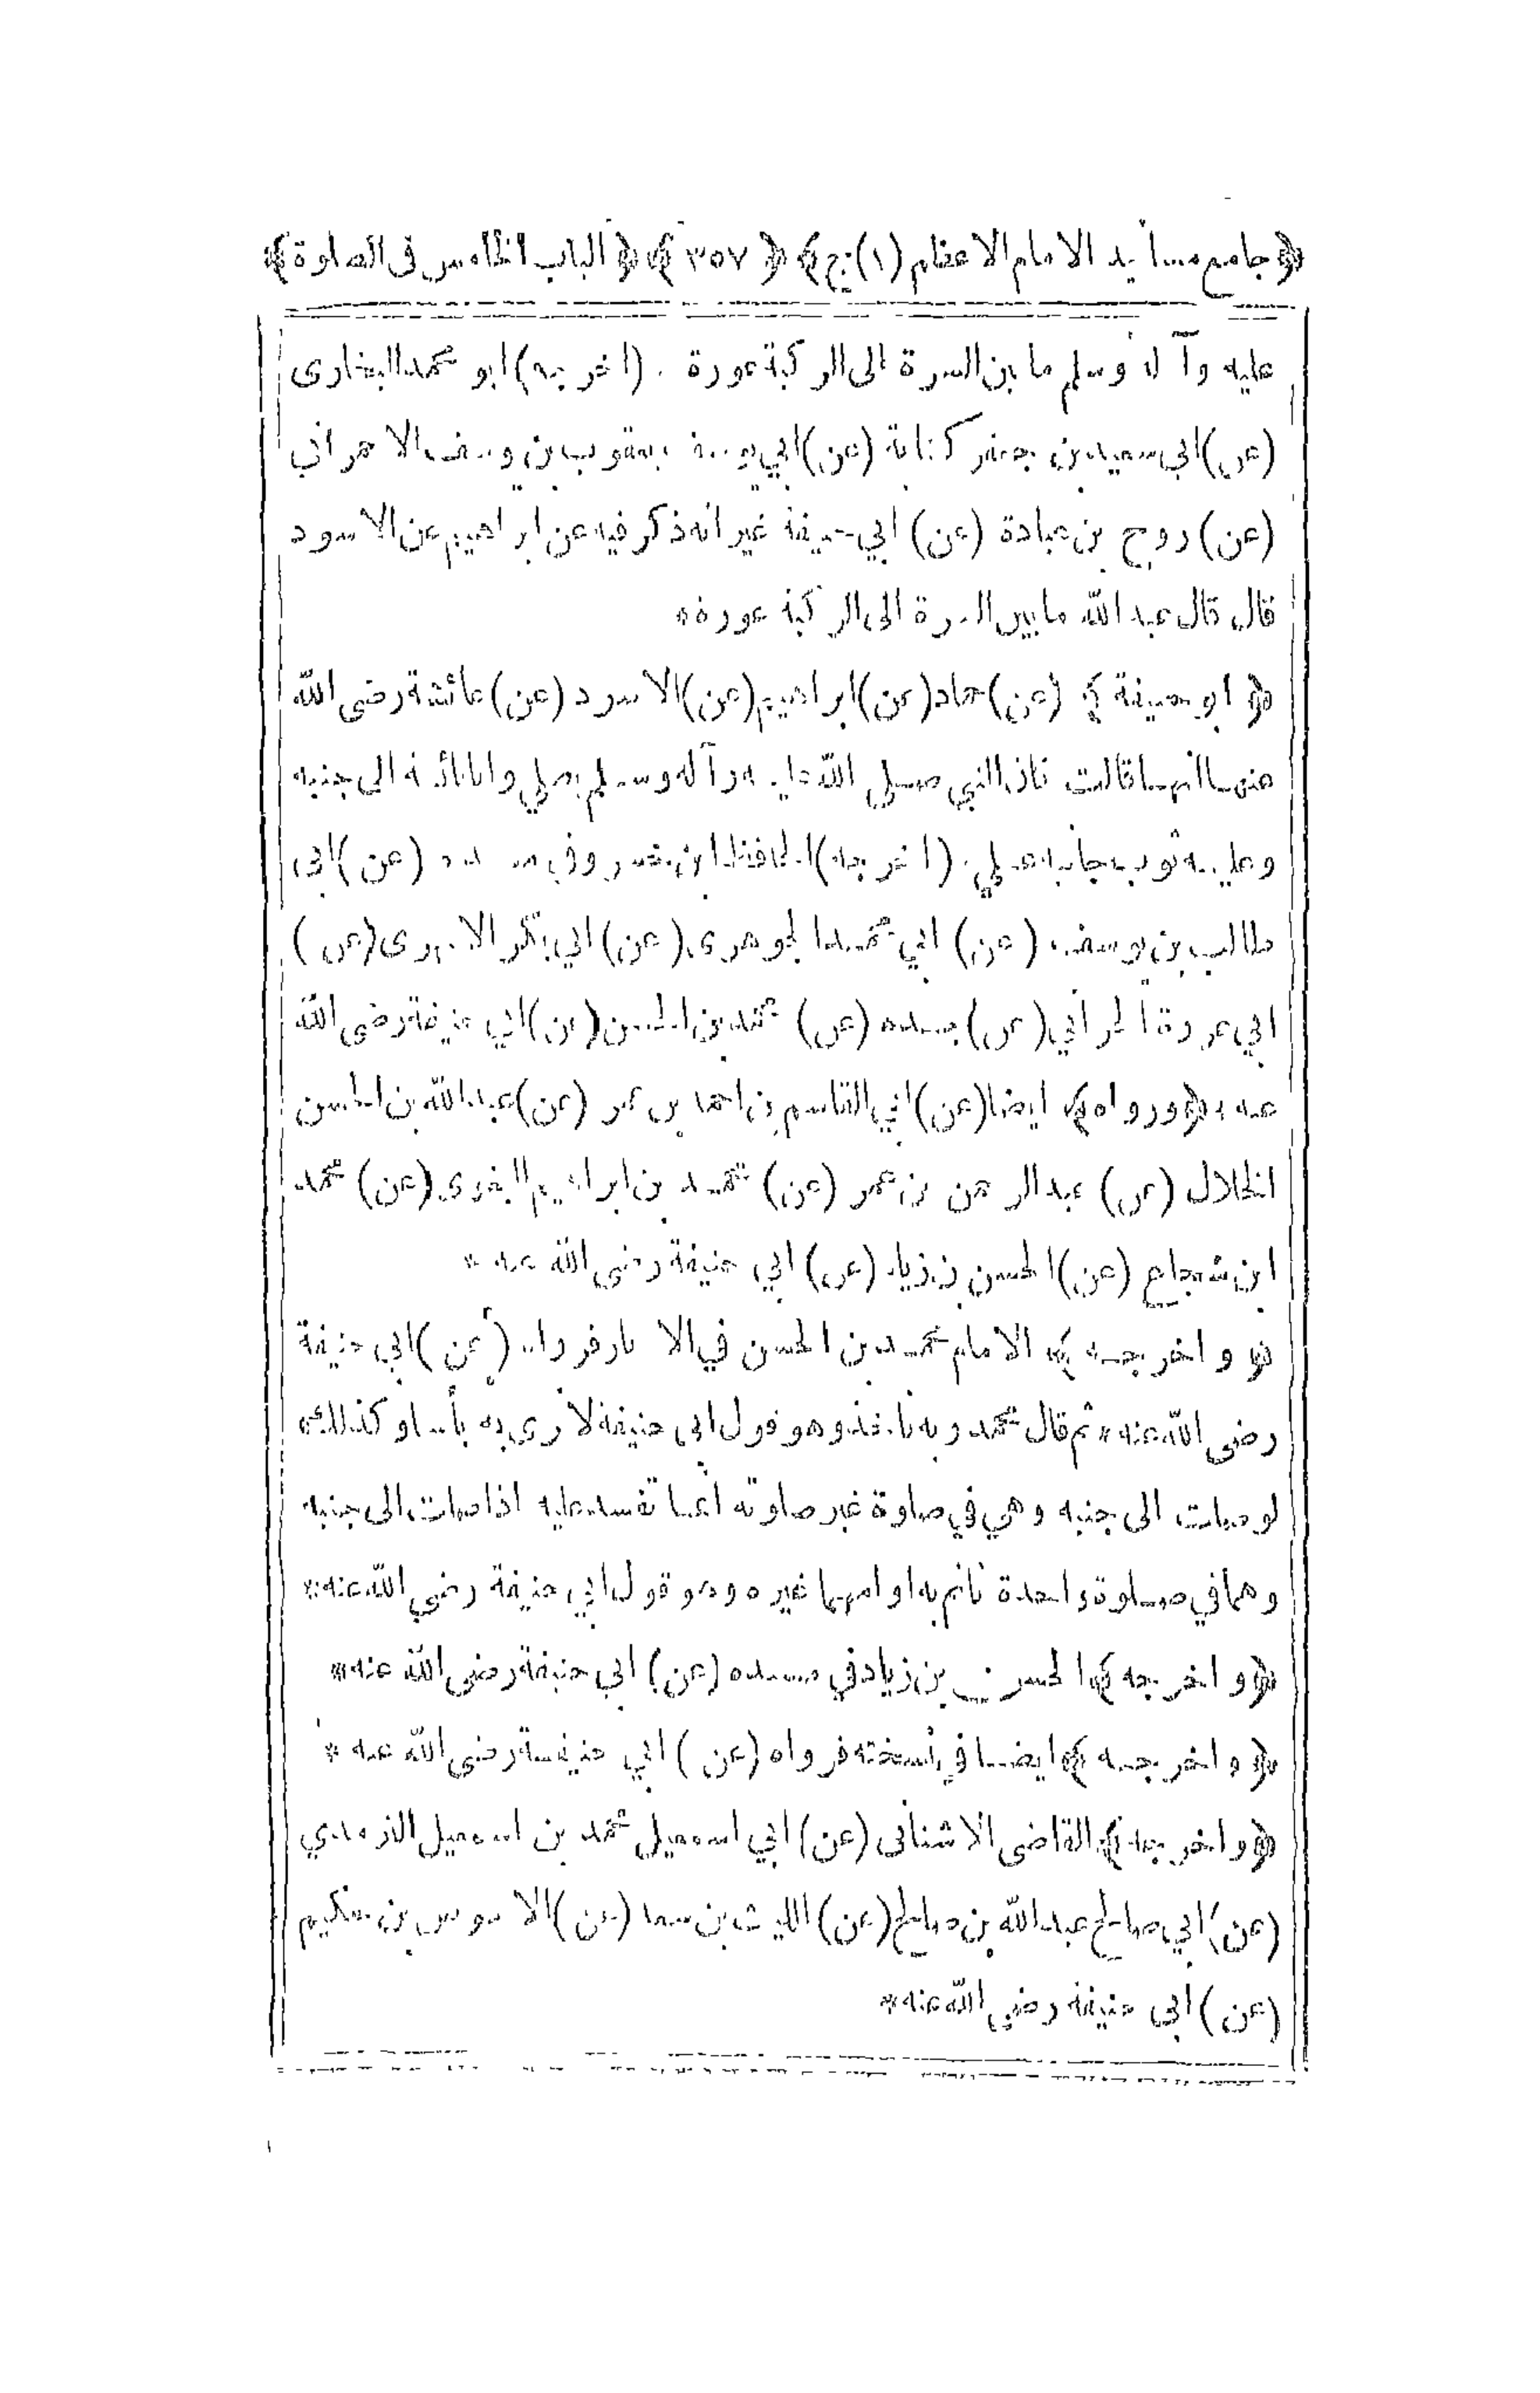 ﴿جامع مسانيد الامام الاعظم (١) ج﴾ ﴿٣٥٧﴾ ﴿الباب الخامس فى الصلوة﴾
عليه وآله وسلم ما بين السرة الى الركبة عورة . (اخرجه) ابو محمد البخارى
(عن) ابى سعيد بن جعفر كتابة (عن) ابي يوسف يعقوب بن يوسف
(عن) روح بن عبادة (عن) ابي حنيفة غير انه ذكر فيه عن ابراهيم عن الاسود
قال قال عبد الله ما بين السرة الى الركبة عورة*
﴿ابو حنيفة﴾ (عن) حماد (عن) ابراهيم (عن) الاسود (عن) عائشة رضى الله
عنها انها قالت كان النبي صلى الله عليه وآله وسلم يصلي وانا نائمة الى جنبه
وعليه ثوب جانبه علي . (اخرجه) الحافظ ابن خسرو في مسنده (عن) ابى
طالب بن يوسف (عن) ابي محمد الجوهرى (عن) ابي بكر الابهرى (عن)
ابي عروة الحراني (عن) جده (عن) محمد بن الحسن (عن) ابي حنيفة رضى الله
عنه *﴿ورواه﴾ ايضا (عن) ابي القاسم بن احمد بن عمر (عن) عبد الله بن الحسن
الخلال (عن) عبد الرحمن بن عمر (عن) محمد بن ابراهيم البغوى (عن) محمد
ابن شجاع (عن) الحسن بن زياد (عن) ابي حنيفة رضى الله عنه *
﴿واخرجه﴾ الامام محمد بن الحسن في الآثار فرواه (عن) ابى حنيفة
رضى الله عنه * ثم قال محمد وبه نأخذ وهو قول ابى حنيفة لا نرى به بأسا وكذلك
لو صلت الى جنبه وهي في صلوة غير صلوته انما تفسد عليه اذا صلت الى جنبه
وهما في صلوة واحدة تأتم به او امهما غيره وهو قول ابي حنيفة رضي الله عنه*
﴿واخرجه﴾ الحسن بن زياد في مسنده (عن) ابي حنيفة رضى الله عنه*
﴿واخرجه﴾ ايضا في نسخته فرواه (عن) ابي حنيفة رضى الله عنه *
﴿واخرجه﴾ القاضى الاشنانى (عن) ابي اسمعيل محمد بن اسمعيل الترمذي
(عن) ابي صالح عبد الله بن صالح (عن) الليث بن سعد (عن) بن حكيم
(عن) ابى حنيفة رضي الله عنه*